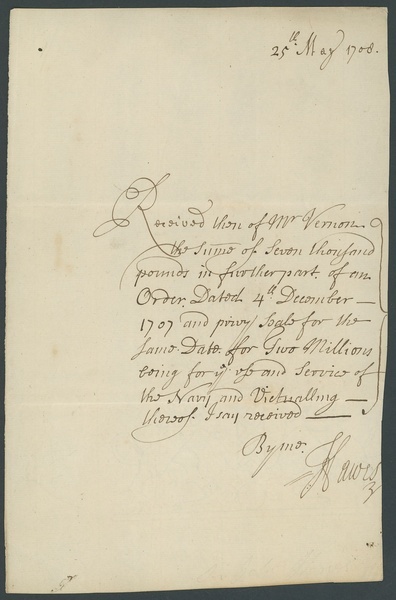 25th May 1708.
Received then of Mr Vernon
the Sume of Seven thousand
pounds in further part of an
Order Dated 4th December
1707 and privy Seale for the
same Date for Two Millions
being for ye use and Service of
the Navy and Victualling
thereof I say received
By me.
Hawes